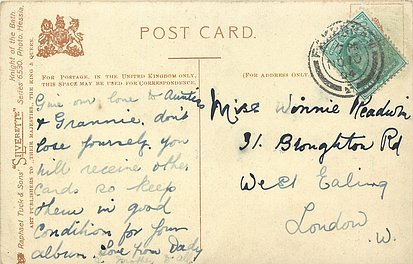 POST CARD.
FOR POSTAGE, IN THE UNITED KINGDOM ONLY,
THIS SPACE MAY BE USED FOR CORRESPONDENCE.
(FOR ADDRESS ONLY
Give our love to Auntie
& Grannie, don't
lose yourself, you
will receive other
cards so keep
them in good
condition for your
album. Love from Dady
Miss Winnie Readwin
31. Broughton Rd
West Ealing
London
W.
Raphael Tuck & Sons' "SILVERETTE"
Knight of the Bath.
Series 6530. Photo. Hessla.
ART PUBLISHERS TO THEIR MAJESTIES THE KING & QUEEN.